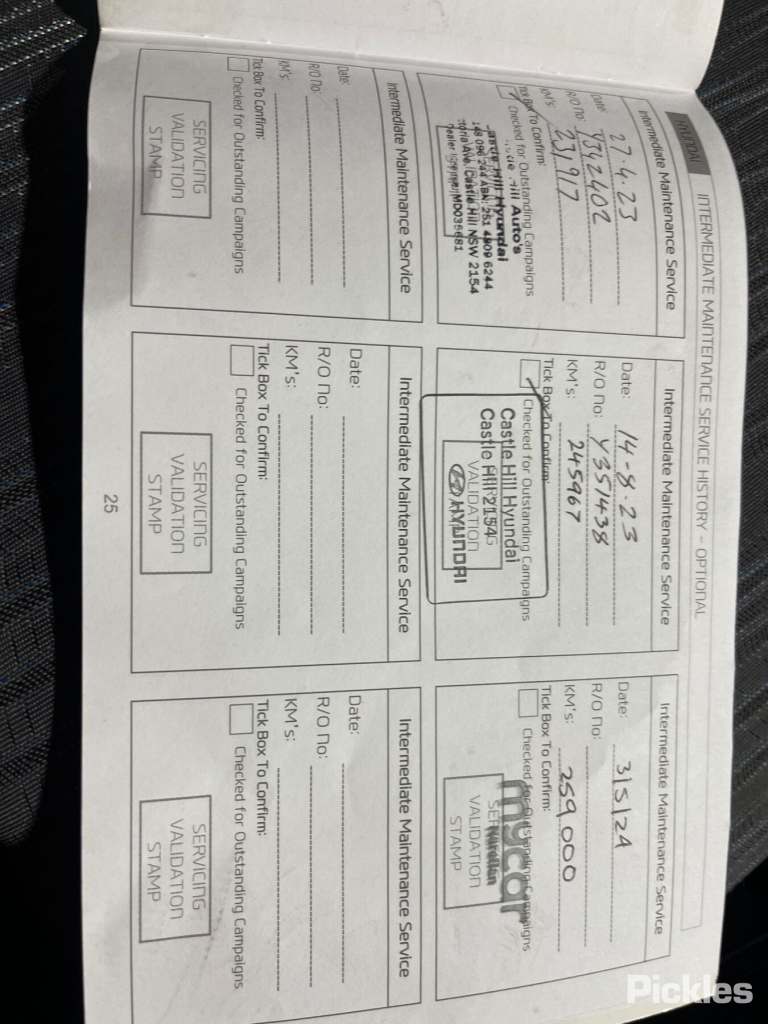 HYUNDAI
INTERMEDIATE MAINTENANCE SERVICE HISTORY - OPTIONAL
Intermediate Maintenance Service
Date: 27.4.23
R/O No: Y342402
KM's: 231,917
Tick Box To Confirm:
Checked for Outstanding Campaigns
Hill Auto's
Hill Hyundai
ABN: 251 4809 6244
Ave, Castle Hill NSW 2154
MD035681
Intermediate Maintenance Service
Date: 14-8-23
R/O No: Y351438
KM's: 245967
Tick Box To Confirm:
Checked for Outstanding Campaigns
Castle Hill Hyundai
Castle Hill 2154
VALIDATION
HYUNDAI
Intermediate Maintenance Service
Date: 3/5/24
R/O No:
KM's: 259 000
Tick Box To Confirm:
Checked for Outstanding Campaigns
mycar
Narellan
VALIDATION
STAMP
Intermediate Maintenance Service
Date:
R/O No:
KM's:
Tick Box To Confirm:
Checked for Outstanding Campaigns
SERVICING
VALIDATION
STAMP
Intermediate Maintenance Service
Date:
R/O No:
KM's:
Tick Box To Confirm:
Checked for Outstanding Campaigns
SERVICING
VALIDATION
STAMP
Intermediate Maintenance Service
Date:
R/O No:
KM's:
Tick Box To Confirm:
Checked for Outstanding Campaigns
SERVICING
VALIDATION
STAMP
25
Pickles